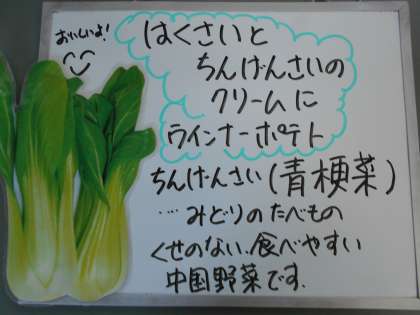 おいしいよ!
はくさいと
ちんげんさいの
クリームに
ウインナーポテト
ちんげんさい(青梗菜)
‥‥みどりのたべもの
くせのない、食べやすい
中国野菜です.